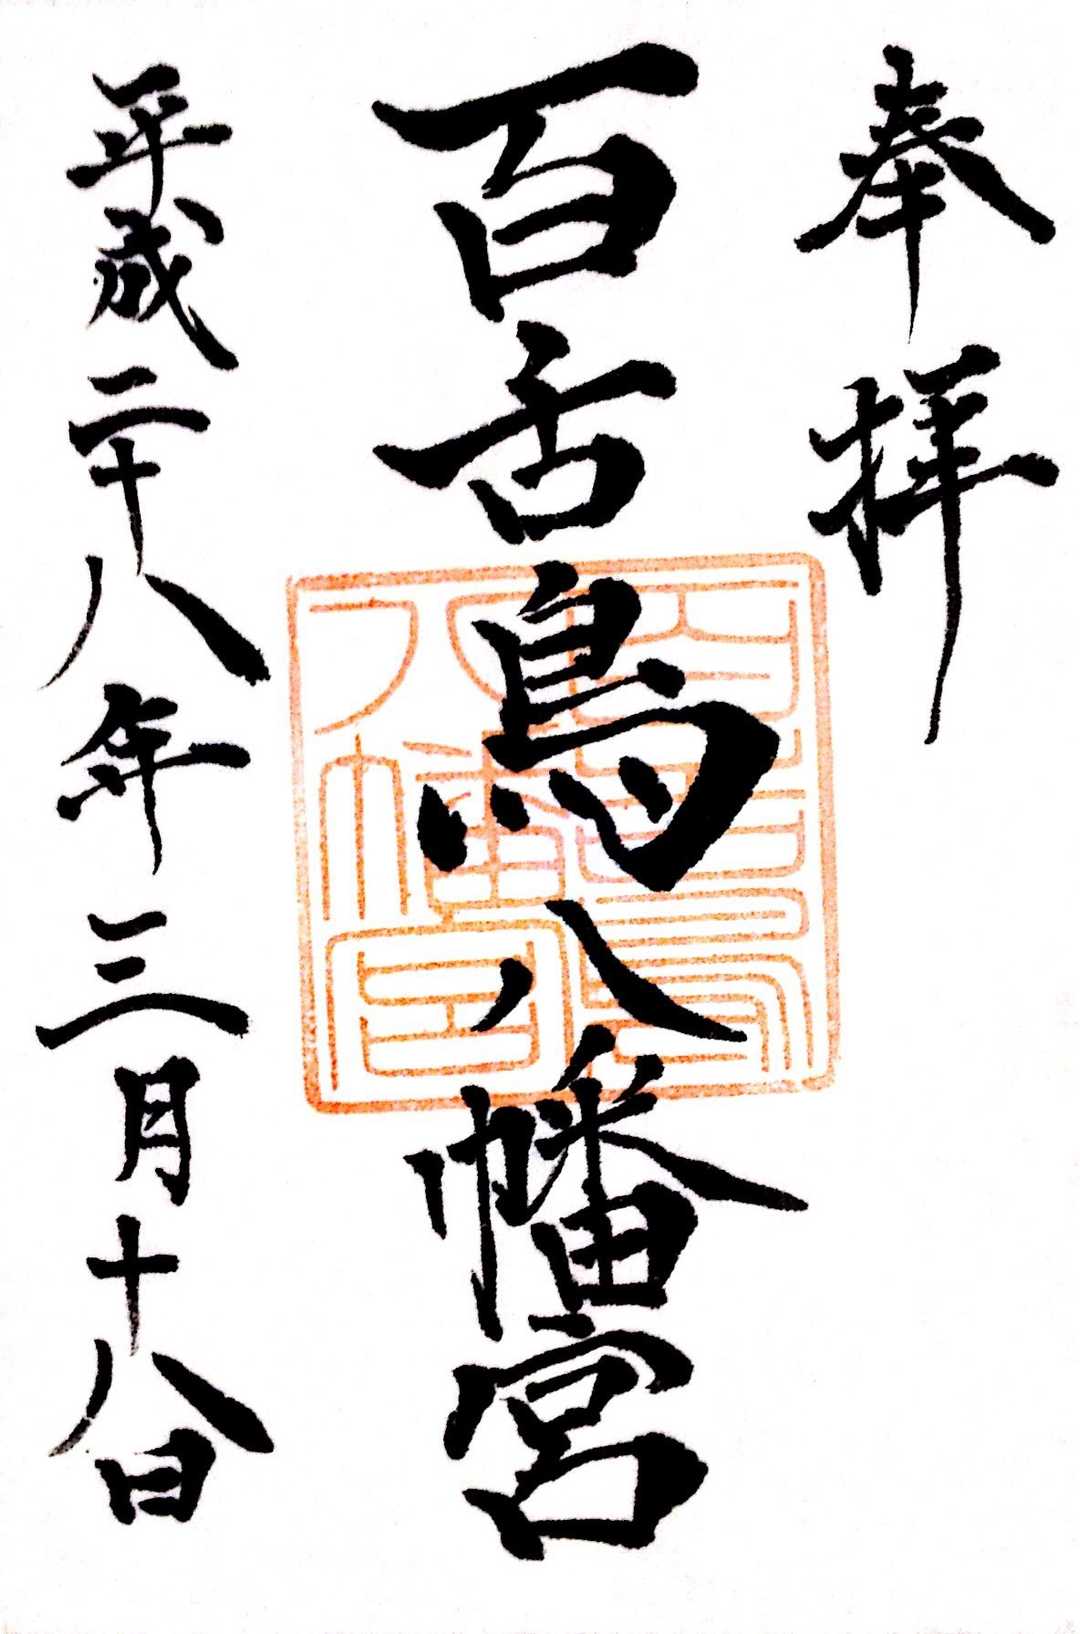 奉拝
百舌鳥八幡宮
平成二十八年三月十八日
百舌鳥八幡宮